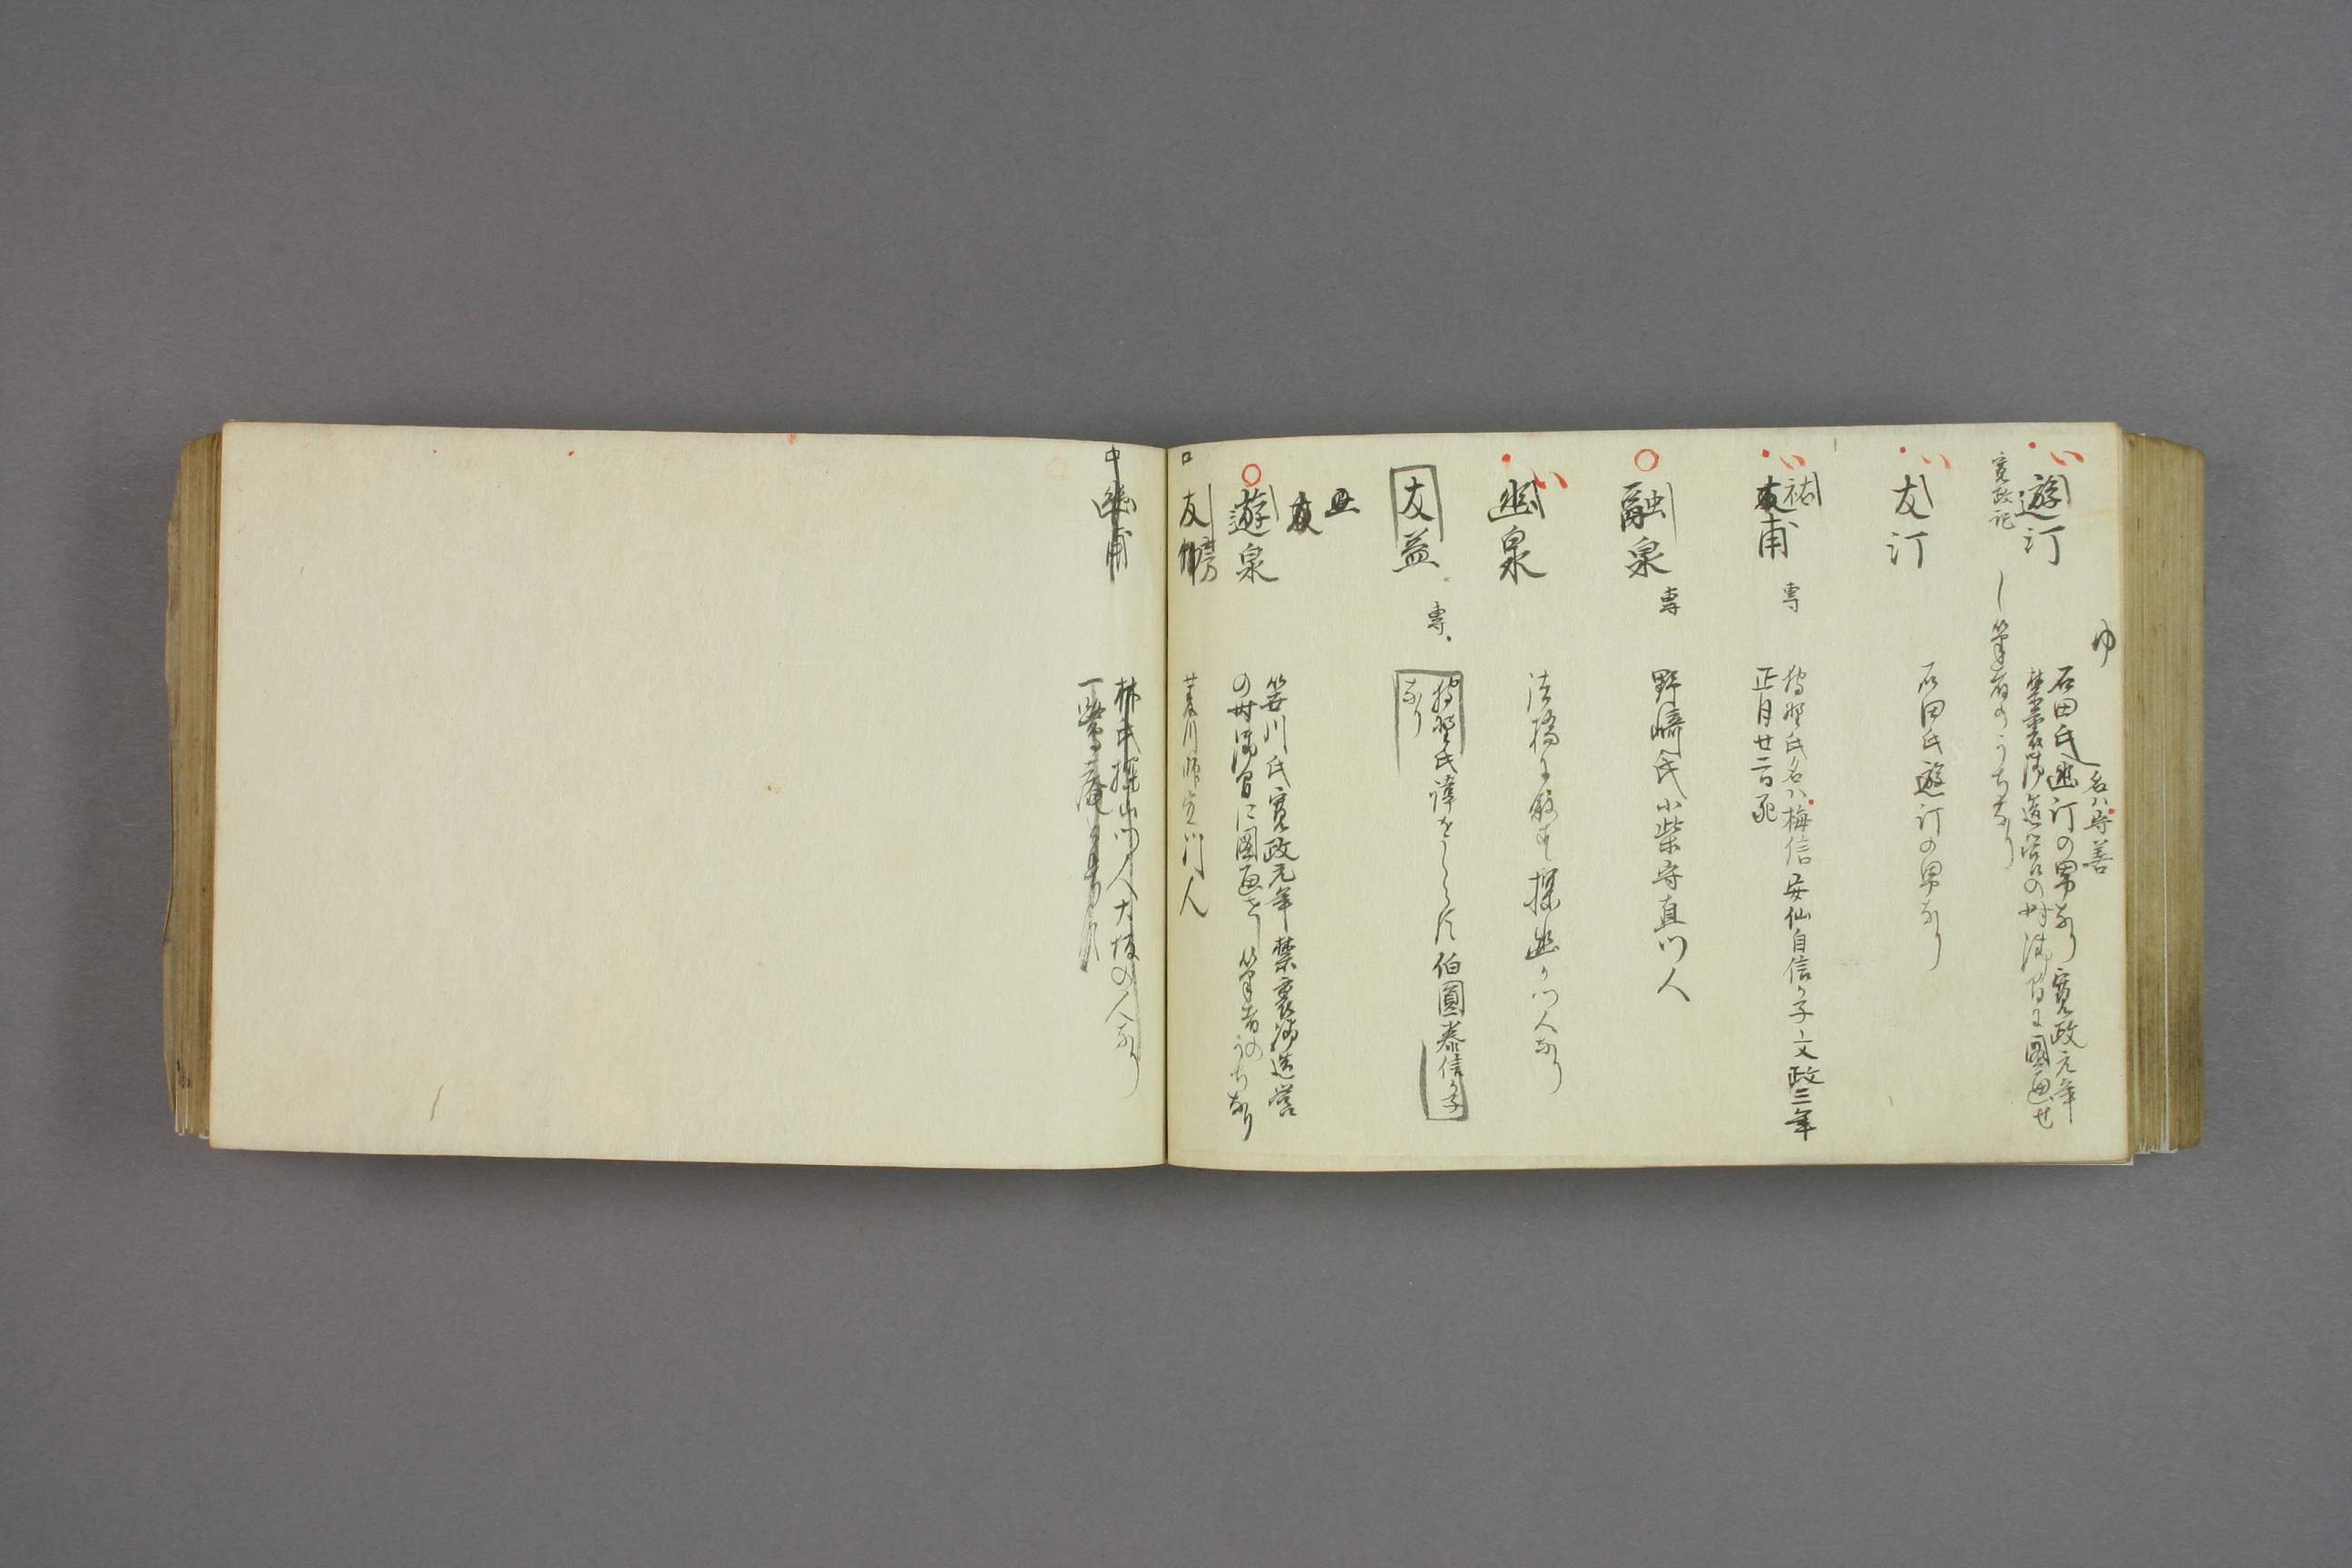 ゆ
遊汀
寛政記
名ハ守善
石田氏幽汀の男なり寛政元年
禁裏御造営の時御間に國画せ
し筆者のうちなり
友汀
石田氏遊汀の男なり
祐
友甫
専
狩野氏名ハ梅信安仙自信か子文政三年
正月廿二日死
融泉
専
野崎氏小柴守直門人
幽泉
法橋に叙す探幽か門人なり
友益
専
狩野氏諱をしらす伯圓泰信か子
なり
遊泉
笠川氏寛政元年禁裏御造営
の時御間に國画せし筆者のうちなり
友房
菱川師宣門人
幽甫
林氏探山門人大坂の人なり
一鶯庵